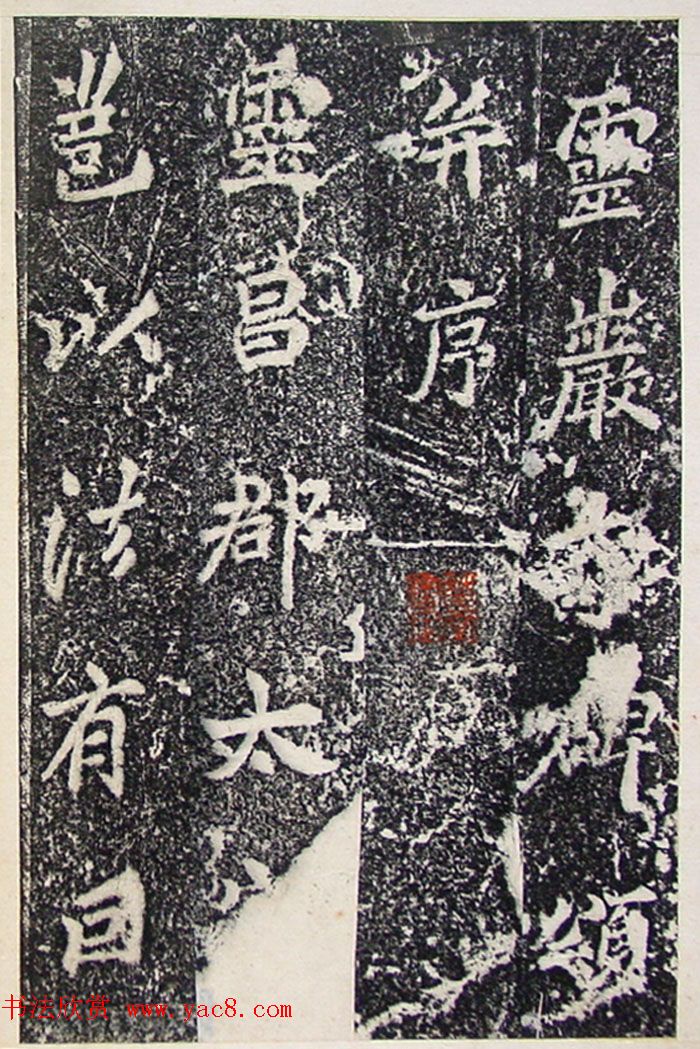 靈巖寺碑頌
并序
靈昌郡太
豈以法有因
书法欣赏 www.yac8.com